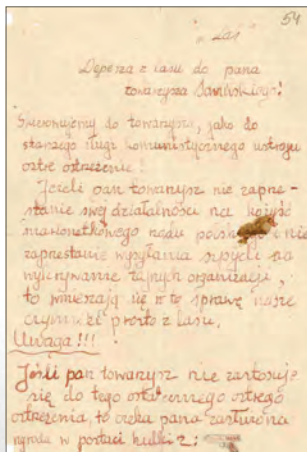 54
„Las”
Depesza z lasu do pana
towarzysza Sawińskiego!
Skierowujemy do towarzysza, jako do
starszego sługi komunistycznego ustroju
ostre ostrzeżenie!
Jeżeli pan towarzysz nie zaprze-
stanie swej działalności na korzyść
marionetkowego rządu polskiego i nie
zaprzestanie wysyłania szpicli na
wykrywanie tajnych organizacji,
to wmieszają się w tę sprawę nasze
czynniki prosto z lasu.
Uwaga!!!
Jeśli pan towarzysz nie zastosuje
się do tego ostatecznego ostrego
ostrzeżenia, to czeka pana zasłużona
nagroda w postaci kulki z: